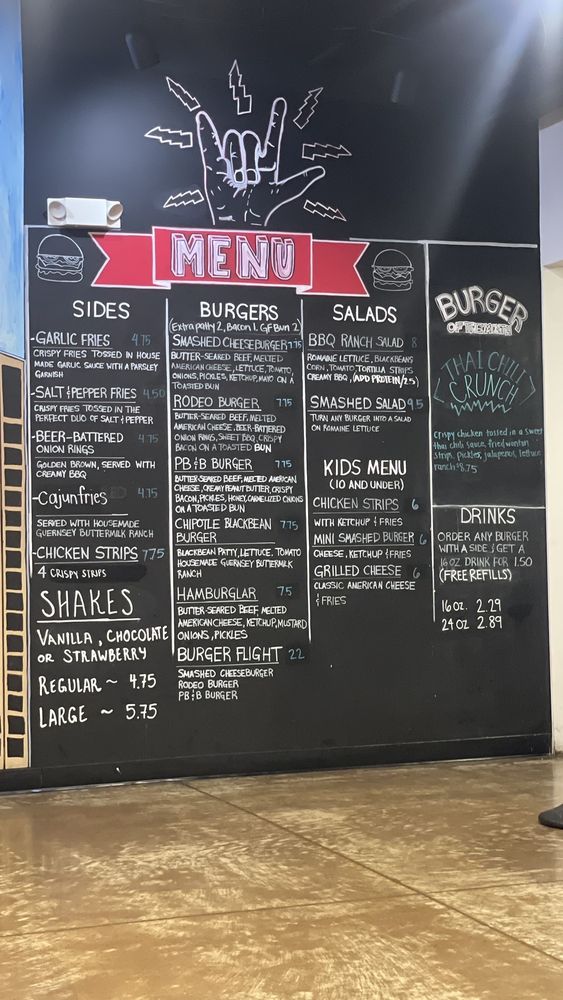 MENU
SIDES
-GARLIC FRIES 4.75
CRISPY FRIES TOSSED IN HOUSE
MADE GARLIC SAUCE WITH A PARSLEY
GARNISH
-SALT & PEPPER FRIES 4.50
CRISPY FRIES TOSSED IN THE
PERFECT DUO OF SALT & PEPPER
-BEER-BATTERED 4.75
ONION RINGS
GOLDEN BROWN, SERVED WITH
CREAMY BBQ
-Cajun fries 4.75
SERVED WITH HOUSEMADE
GUERNSEY BUTTERMILK RANCH
-CHICKEN STRIPS 7.75
4 CRISPY STRIPS
SHAKES
VANILLA, CHOCOLATE
OR STRAWBERRY
REGULAR ~ 4.75
LARGE ~ 5.75
BURGERS
(Extra patty 2, Bacon 1, GF Bun 2)
SMASHED CHEESEBURGER 7.75
BUTTER-SEARED BEEF, MELTED
AMERICAN CHEESE, LETTUCE, TOMATO,
ONIONS, PICKLES, KETCHUP, MAYO ON A
TOASTED BUN
RODEO BURGER 7.75
BUTTER-SEARED BEEF, MELTED
AMERICAN CHEESE, BEER-BATTERED
ONION RINGS, SWEET BBQ, CRISPY
BACON ON A TOASTED BUN
PB & B BURGER 7.75
BUTTER-SEARED BEEF, MELTED AMERICAN
CHEESE, CREAMY PEANUT BUTTER, CRISPY
BACON, PICKLES, HONEY, CARMELIZED ONIONS
ON A TOASTED BUN
CHIPOTLE BLACKBEAN 7.75
BURGER
BLACKBEAN PATTY, LETTUCE, TOMATO
HOUSEMADE GUERNSEY BUTTERMILK
RANCH
HAMBURGLAR 7.5
BUTTER-SEARED BEEF MELTED
AMERICAN CHEESE, KETCHUP, MUSTARD
ONIONS, PICKLES
BURGER FLIGHT 22
SMASHED CHEESEBURGER
RODEO BURGER
PB & B BURGER
SALADS
BBQ RANCH SALAD 8
ROMAINE LETTUCE, BLACKBEANS
CORN, TOMATO, TORTILLA STRIPS
CREAMY BBQ, (ADD PROTEIN/2.5)
SMASHED SALAD 9.5
TURN ANY BURGER INTO A SALAD
ON ROMAINE LETTUCE
KIDS MENU
(10 AND UNDER)
CHICKEN STRIPS 6
WITH KETCHUP & FRIES
MINI SMASHED BURGER 6
CHEESE, KETCHUP & FRIES
GRILLED CHEESE 6
CLASSIC AMERICAN CHEESE
& FRIES
BURGER
OF THE MONTH
THAI CHILI
CRUNCH
Crispy chicken tossed in a sweet
thai chili sauce, fried wonton
strips, pickles, jalapenos, lettuce
ranch $8.75
DRINKS
ORDER ANY BURGER
WITH A SIDE & GET A
16 OZ DRINK FOR 1.50
(FREE REFILLS)
16 OZ. 2.29
24 OZ 2.89